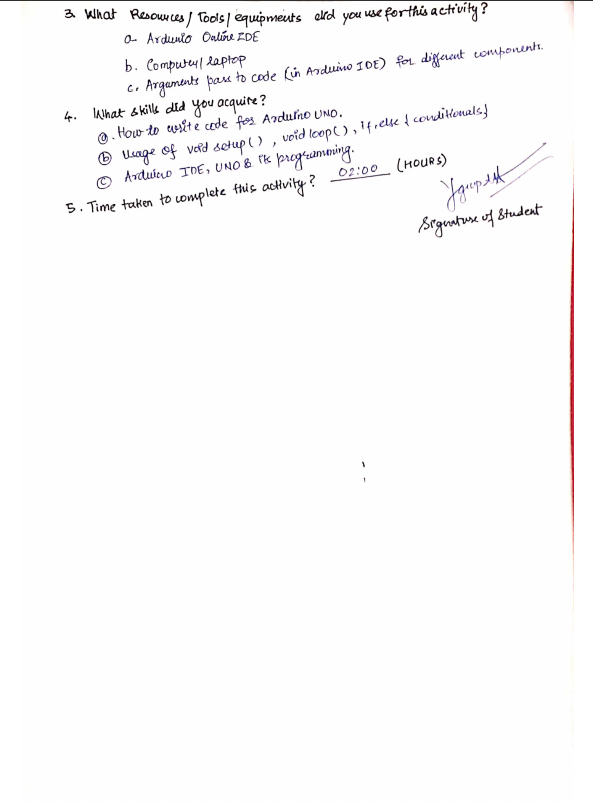 3. What Resources/ Tools/ equipments did you use for this activity?
a. Arduino Online IDE
b. Computer/ laptop
c. Arguments pass to code (in Arduino IDE) for different components.
4. What skills did you acquire?
a. How to write code for Arduino UNO.
b Usage of void setup(), void loop(), if, else { conditionals}
c Arduino IDE, UNO & its programming.
5. Time taken to complete this activity? 02:00 (HOURS)
Signature of Student